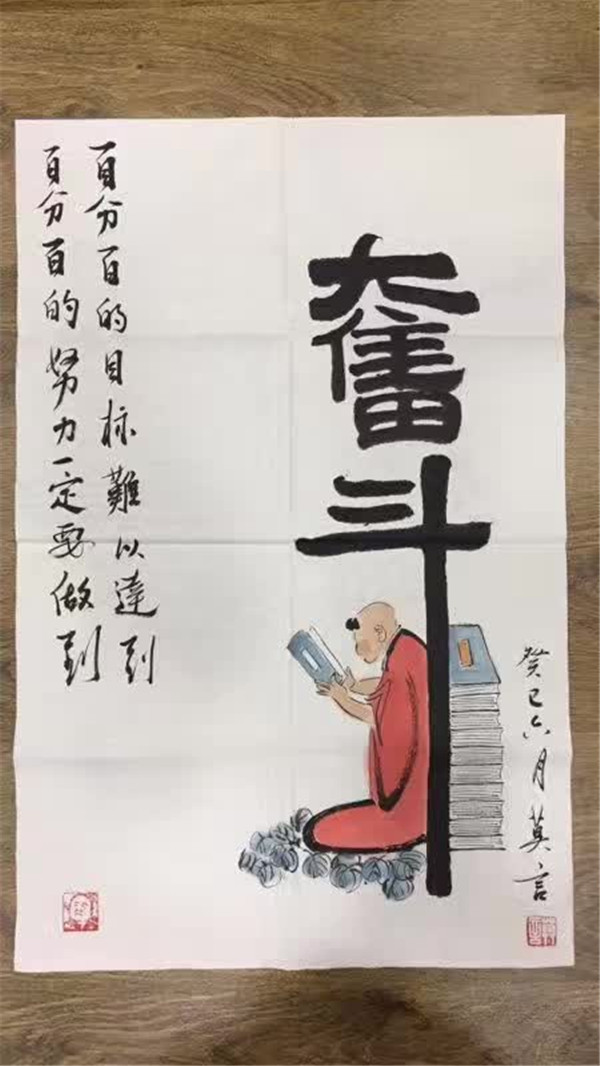 奮斗
百分百的目标難以達到
百分百的努力一定要做到
癸巳六月莫言